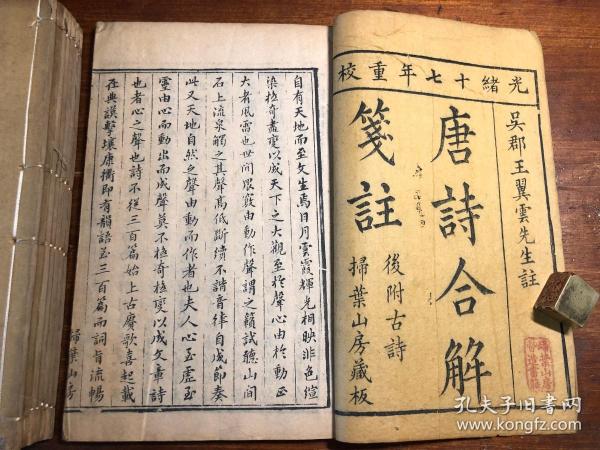 光緒十七年重校
吳郡王翼雲先生註
唐詩合解
箋註
後附古詩
掃葉山房藏板
自有天地而至文生焉日月雲霞輝光相映非色縇
染極奇盡變以成天下之大觀至於聲心由於動
大者風雷也世间眾竅由動作聲謂之籟試聽山间
石上流泉觸之其聲髙低斷续不諧音律自成節奏
此又天地自然之聲由動而作者也夫人心至虛至
靈由心而動出而成聲莫不極奇極變以成文章詩
也者心之聲也詩不從三百篇始上古賡歌喜起載
在典謨擊壤康衢即有韻語至三百篇而詞旨流暢
掃葉山房
孔夫子旧书网
kongfz.com